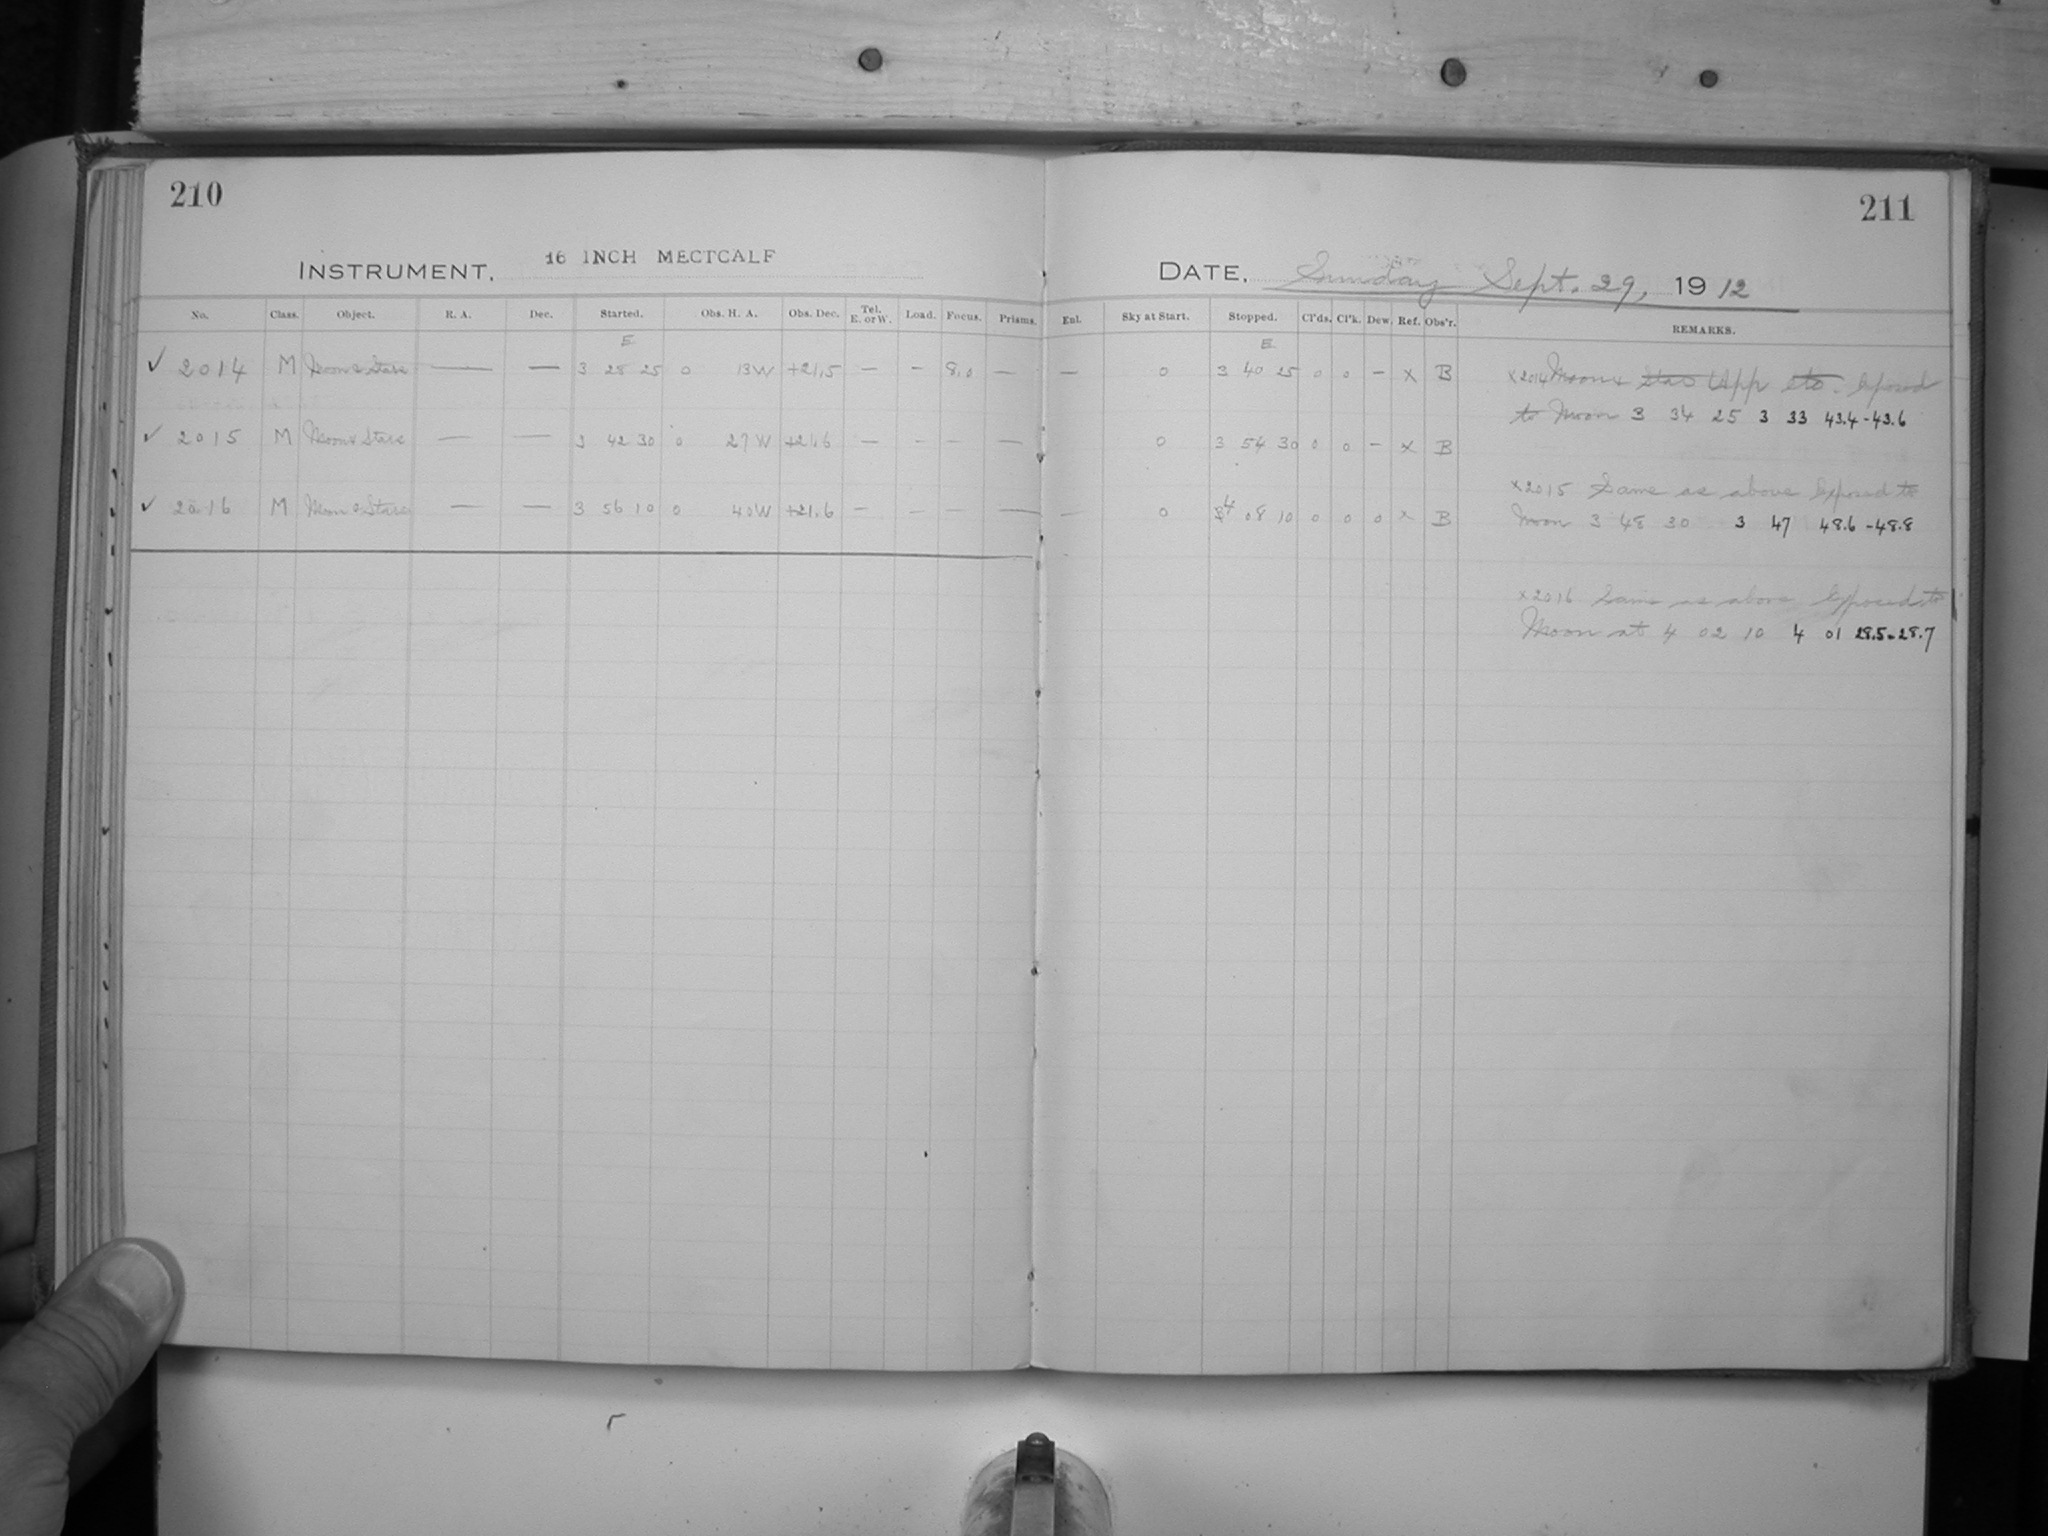 210
INSTRUMENT, 16 INCH MECTCALF
No. Class. Object. R. A. Dec. Started. Obs. H. A. Obs. Dec. Tel. E. or W. Load. Focus. Prisms.
E
✓ 2014 M Moon & Stars — — 3 28 25 0 13W +21.5 — — 8.0 —
✓ 2015 M Moon & Stars — — 3 42 30 0 27W +21.6 — — — —
✓ 2016 M Moon & Stars — — 3 56 10 0 40W +21.6 — — — —
211
DATE, Sunday Sept. 29, 1912
Enl. Sky at Start. Stopped. Cl'ds. Cl'k. Dew. Ref. Obs'r. REMARKS.
E
— 0 3 40 25 0 0 — x B
0 3 54 30 0 0 — x B
— 0 4 08 10 0 0 0 x B
x2014 Moon & Stars App Exposed
to Moon 3 34 25 3 33 43.4-43.6
x2015 Same as above Exposed to
Moon 3 48 30 3 47 48.6-48.8
x2016 Same as above Exposed to
Moon at 4 02 10 4 01 28.5-28.7